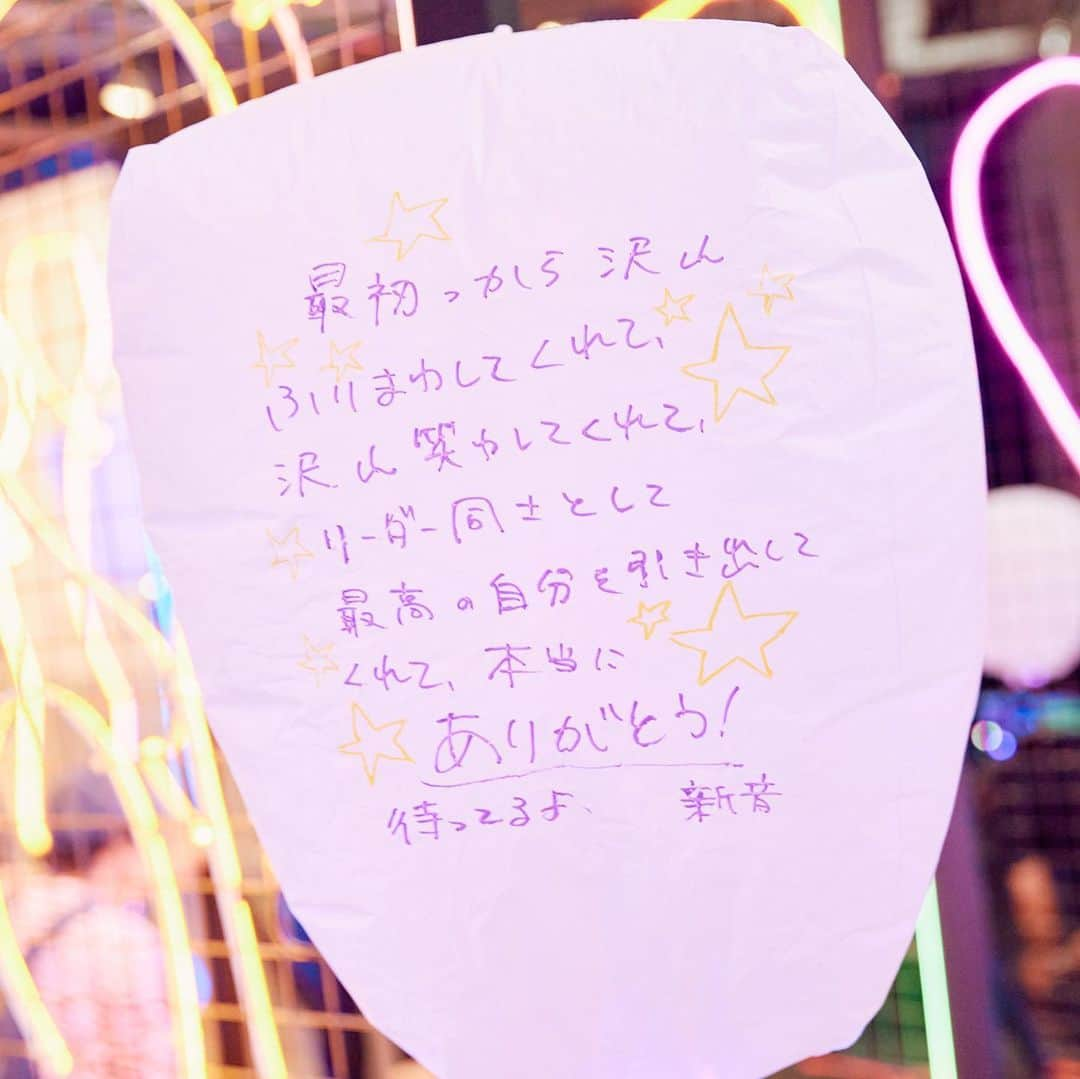 最初っから沢山
ふりまわしてくれて、
沢山笑わしてくれて、
リーダー同士として
最高の自分を引き出して
くれて、本当に
ありがとう!
待ってるよ、 新音